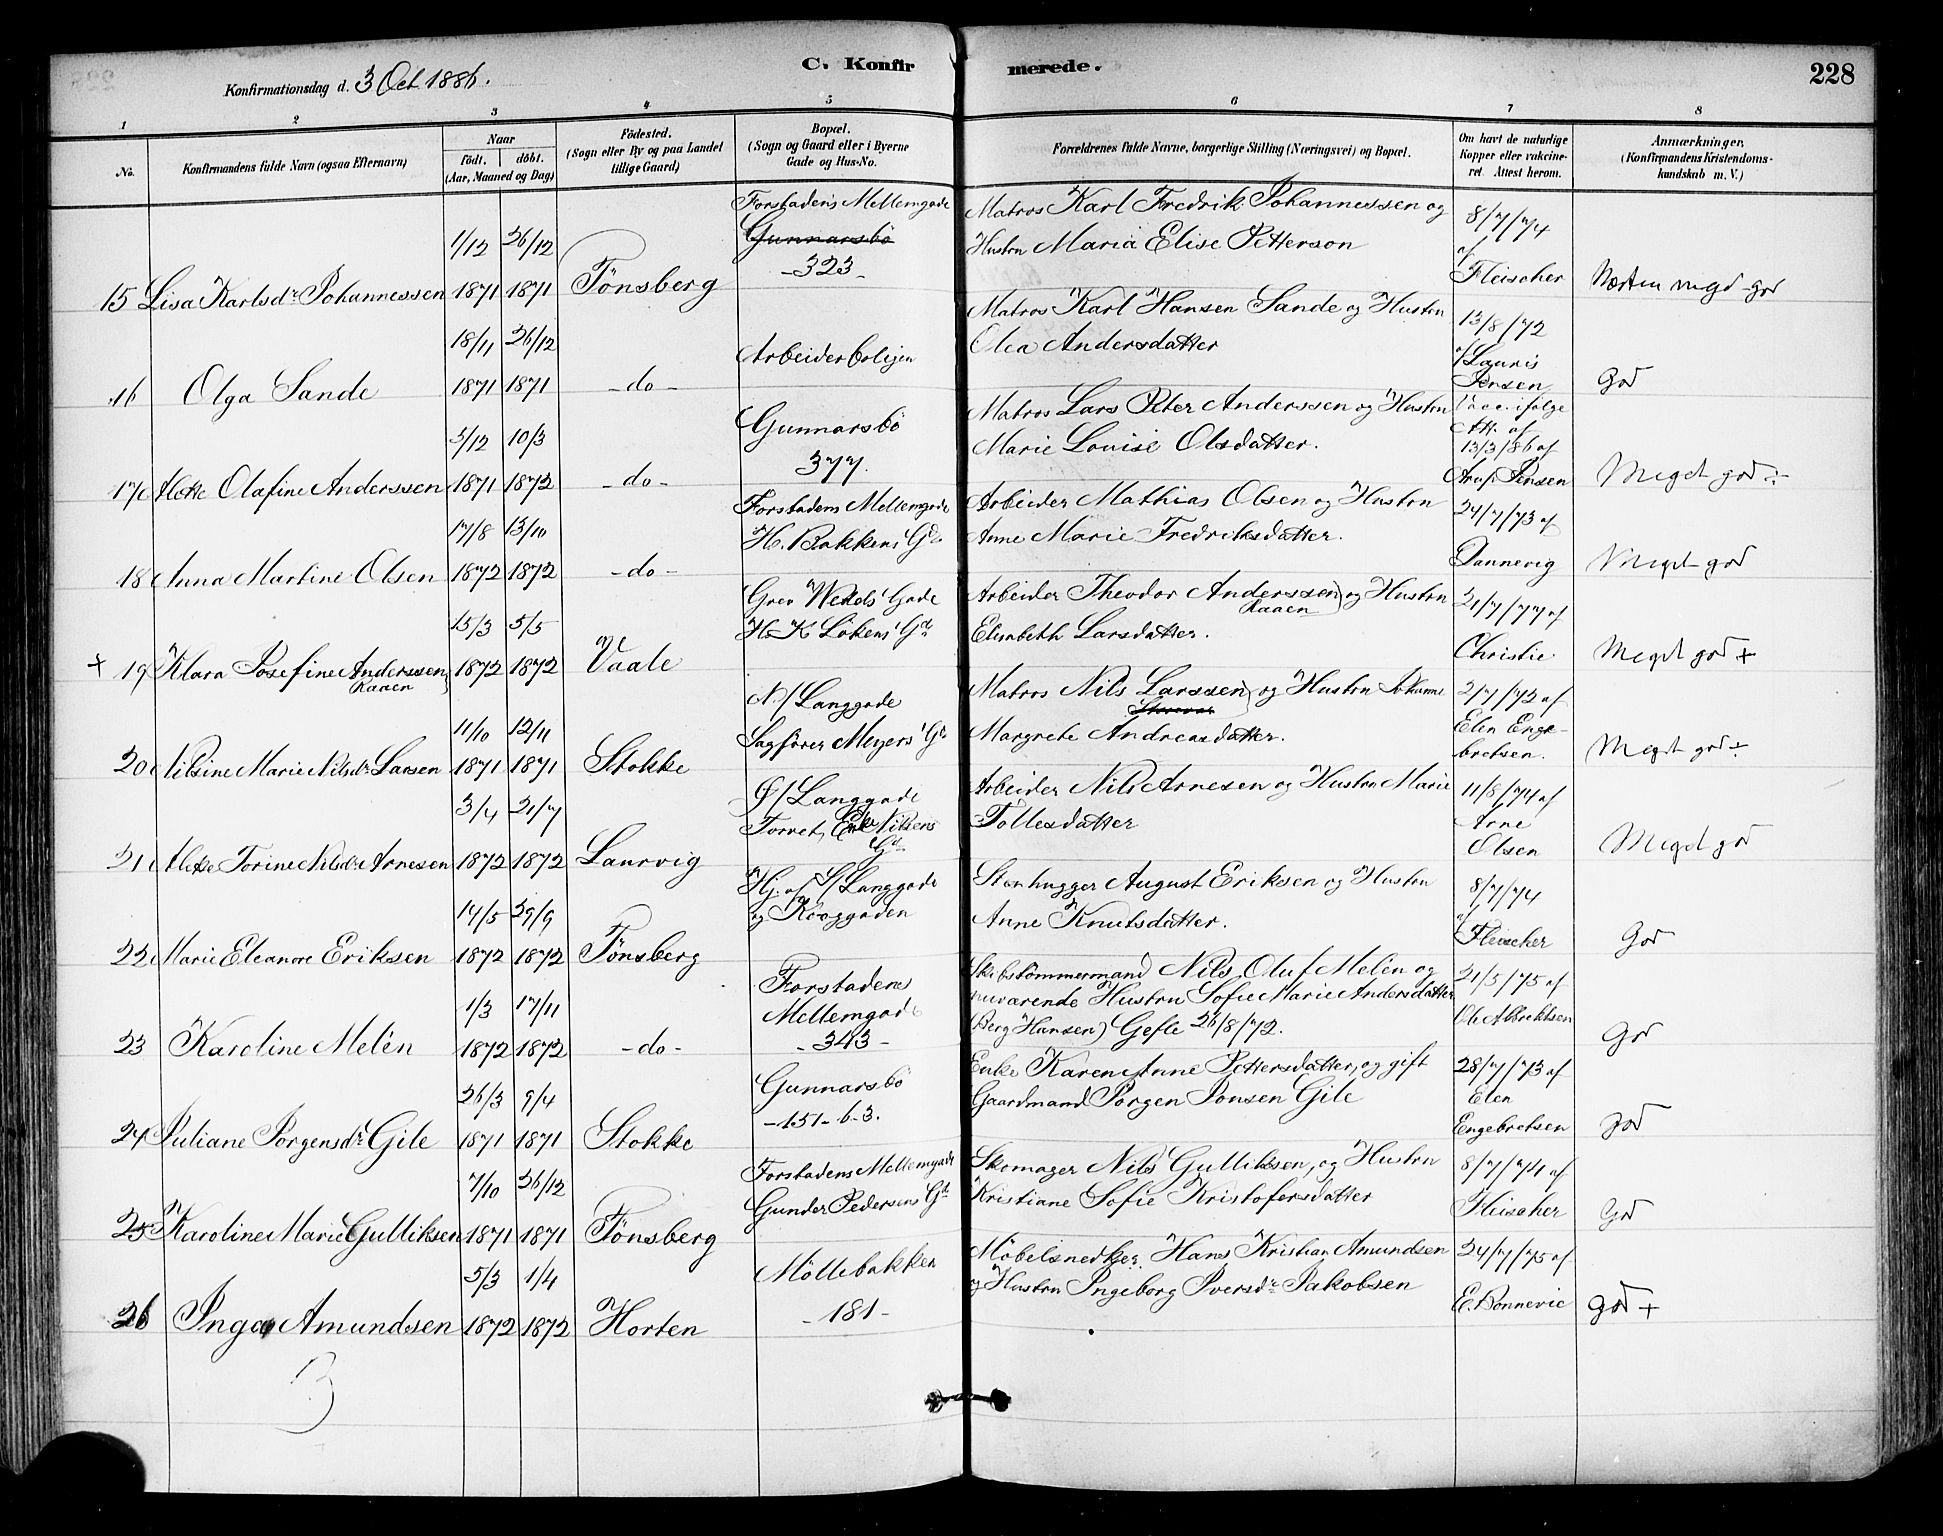 C. Konfirmerede.
228
Konfirmationsdag d. 3 Oct 1886.
1 2 3 4 5 6 7 8
No. Konfirmandens fulde Navn (ogsaa Efternavn) Naar födt. döbt. (Aar, Maaned og Dag) Födested. (Sogn eller By og paa Landet tillige Gaard) Bopæl. (Sogn og Gaard eller i Byerne Gade og Hus-No. Forældrenes fulde Navne, borgerlige Stilling (Næringsvei) og Bopæl. Om havt de naturlige Kopper eller vakcineret. Attest herom. Anmærkninger, (Konfirmandens Kristendomskundskab m. V.)
Forstadens Mellemgade Matros Karl Fredrik Johannessen og 8/7/74
1/12 26/12 Gunnarsbö Hustru Maria Elise Petterson af
15 Lisa Karlsdr Johannessen 1871 1871 Tönsberg -323- Fleischer Næsten megt god
18/11 26/12 Arbeiderboligen Matros Karl Hansen Sande og Hustru 13/8/72
Olea Andersdatter af Lauris
16 Olga Sande 1871 1871 -do- Jensen God
5/12 10/3 Gunnarsbö Matros Lars Peter Anderssen og Hustru Vacc. ifølge
377. Marie Louise Olsdatter. Att. af
13/3/86 af
17 Alette Olafine Anderssen 1871 1872 -do- Jensen Meget god ÷
17/8 13/10 Forstadens Mellemgade Arbeider Mathias Olsen og Hustru 24/7/73 af
H. Bakkens Gd Anne Marie Fredriksdatter.
18 Anna Martine Olsen 1872 1872 -do- Dannevig Meget god
15/3 5/5 Grev Wedels Gade Arbeider Theodor Anderssen og Hustru 21/7/77 af
H. K Lökens Gd Raaen Elisabeth Larsdatter.
+ 19 Klara Josefine Anderssen 1872 1872 Vaale Christie Meget god +
Raaen
11/10 12/11 N./Langgade Matros Nils Larssen og Hustru Johanne 2/7/72 af
Sagförer Meyers Gd Margrete Andreasdatter. Elen Enge-
20 Nilsine Marie Nilsdr Larsen 1871 1871 Stokke bretsen. Meget god ÷
3/4 21/7 Ø/Langgade Arbeider Nils Arnesen og Hustru Marie 11/8/74 af
Torvet, Enke Nilsens Gd Tollesdatter Arne
21 Alette Torine Nilsdr Arnesen 1872 1872 Laurvig Olsen Meget god
14/5 29/9 Hj. af S/Langgade Stenhugger August Eriksen og Hustru 8/7/74
og Kroggaden Anne Knutsdatter. af
22 Marie Eleanore Eriksen 1872 1872 Tönsberg Fleischer God
1/3 17/11 Forstadens Skibstömmermand Nils Oluf Melén og 21/5/75 af
Mellemgade nuværende Hustru Sofie Marie Andersdatter
23 Karoline Melén 1872 1872 -do- -343- (Berg Hansen) Gefle 26/8/72. Ole Albrektsen God
26/3 9/4 Gunnarsbö Enke Karen Anne Pettersdatter, og gift 28/7/73 af
-151-b-3. Gaardmand Jörgen Jonsen Gile Elen
24 Juliane Jörgensdr Gile 1871 1871 Stokke Engebretsen god
7/10 26/12 Forstadens Mellemgade Skomager Nils Gulliksen, og Hustru 8/7/74 af
Gunder Pedersens Gd Kristiane Sofie Kristofersdatter
25 Karoline Marie Gulliksen 1871 1871 Tönsberg Fleischer God
5/3 1/4 Möllebakken Möbelsnedker Hans Kristian Amundsen 24/7/75 af
og Hustru Ingeborg Iversdr Jakobsen
26 Inga Amundsen 1872 1872 Horten -181- E. Bonnevie God +